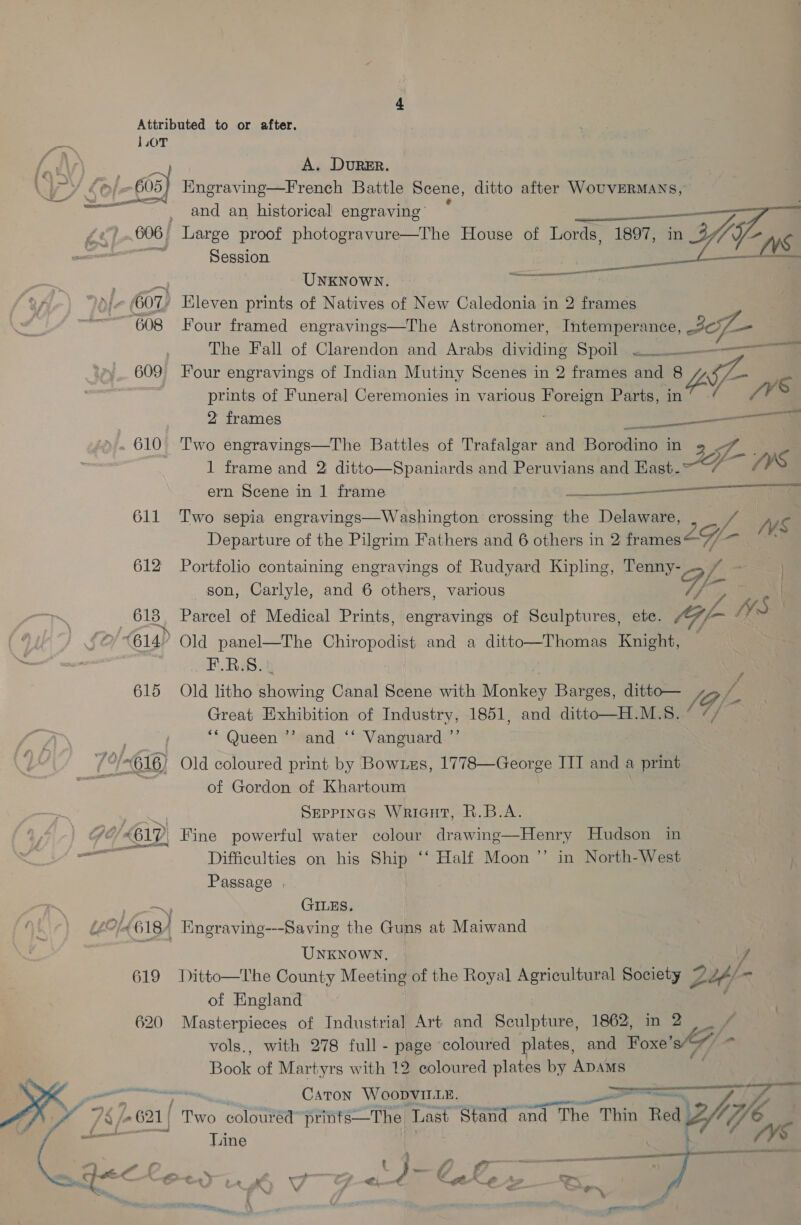 4
Attributed to or after.
LOT
A. DURER.
605 Engraving—French Battle Scene, ditto after WOUVERMANS,
and an historical engraving
606 Large proof photogravure—The House of Lords, 1897, in
Session NS
UNKNOWN.
607 Eleven prints of Natives of New Caledonia in 2 frames
608 Four framed engravings—The Astronomer, Intemperance,
The Fall of Clarendon and Arabs dividing Spoil
609 Four engravings of Indian Mutiny Scenes in 2 frames and 8
prints of Funeral Ceremonies in various Foreign Parts, in NS
2 frames
610 Two engravings—The Battles of Trafalgar and Borodino in
1 frame and 2 ditto—Spaniards and Peruvians and East- NS
ern Scene in 1 frame
611 Two sepia engravings—Washington crossing the Delaware, NS
Departure of the Pilgrim Fathers and 6 others in 2 frames
612 Portfolio containing engravings of Rudyard Kipling, Tenny-
son, Carlyle, and 6 others, various
613 Parcel of Medical Prints, engravings of Sculptures, etc. NS
614 Old panel—The Chiropodist and a ditto—Thomas Knight,
F.R.S.
615 Old litho showing Canal Scene with Monkey Barges, ditto—
Great Exhibition of Industry, 1851, and ditto—H.M.S.
“ Queen ” and “ Vanguard ”
70/- 616 Old coloured print by BOWLES, 1778—George III and a print
of Gordon of Khartoum
SEPPINGS WRIGHT, R.B.A.
617 Fine powerful water colour drawing—Henry Hudson in
Difficulties on his Ship “ Half Moon ” in North-West
Passage
GILES.
618 Engraving---Saving the Guns at Maiwand
UNKNOWN.
619 Ditto—The County Meeting of the Royal Agricultural Society
of England
620 Masterpieces of Industrial Art and Sculpture, 1862, in 2
vols., with 278 full - page coloured plates, and Foxe’s
Book of Martyrs with 12 coloured plates by ADAMS
CATON WOODVILLE.
621 Two coloured prints—The Last Stand and The Thin Red
Line NS